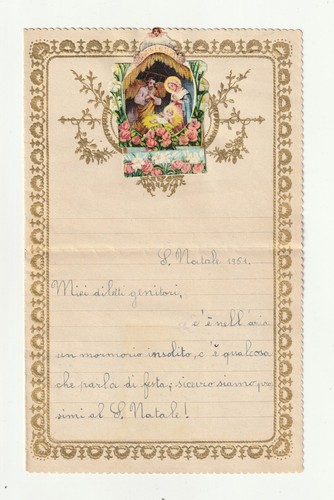 S. Natale 1951.
Miei diletti genitori,
c'è nell'aria
un mormorio insolito, c'è qualcosa
che parla di festa; sicuro siamo pros
simi al S. Natale!